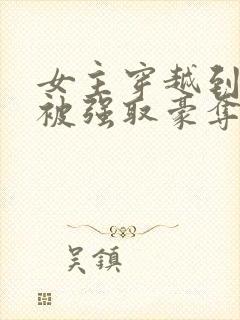 女主穿越到
被强取豪夺
吴鎮